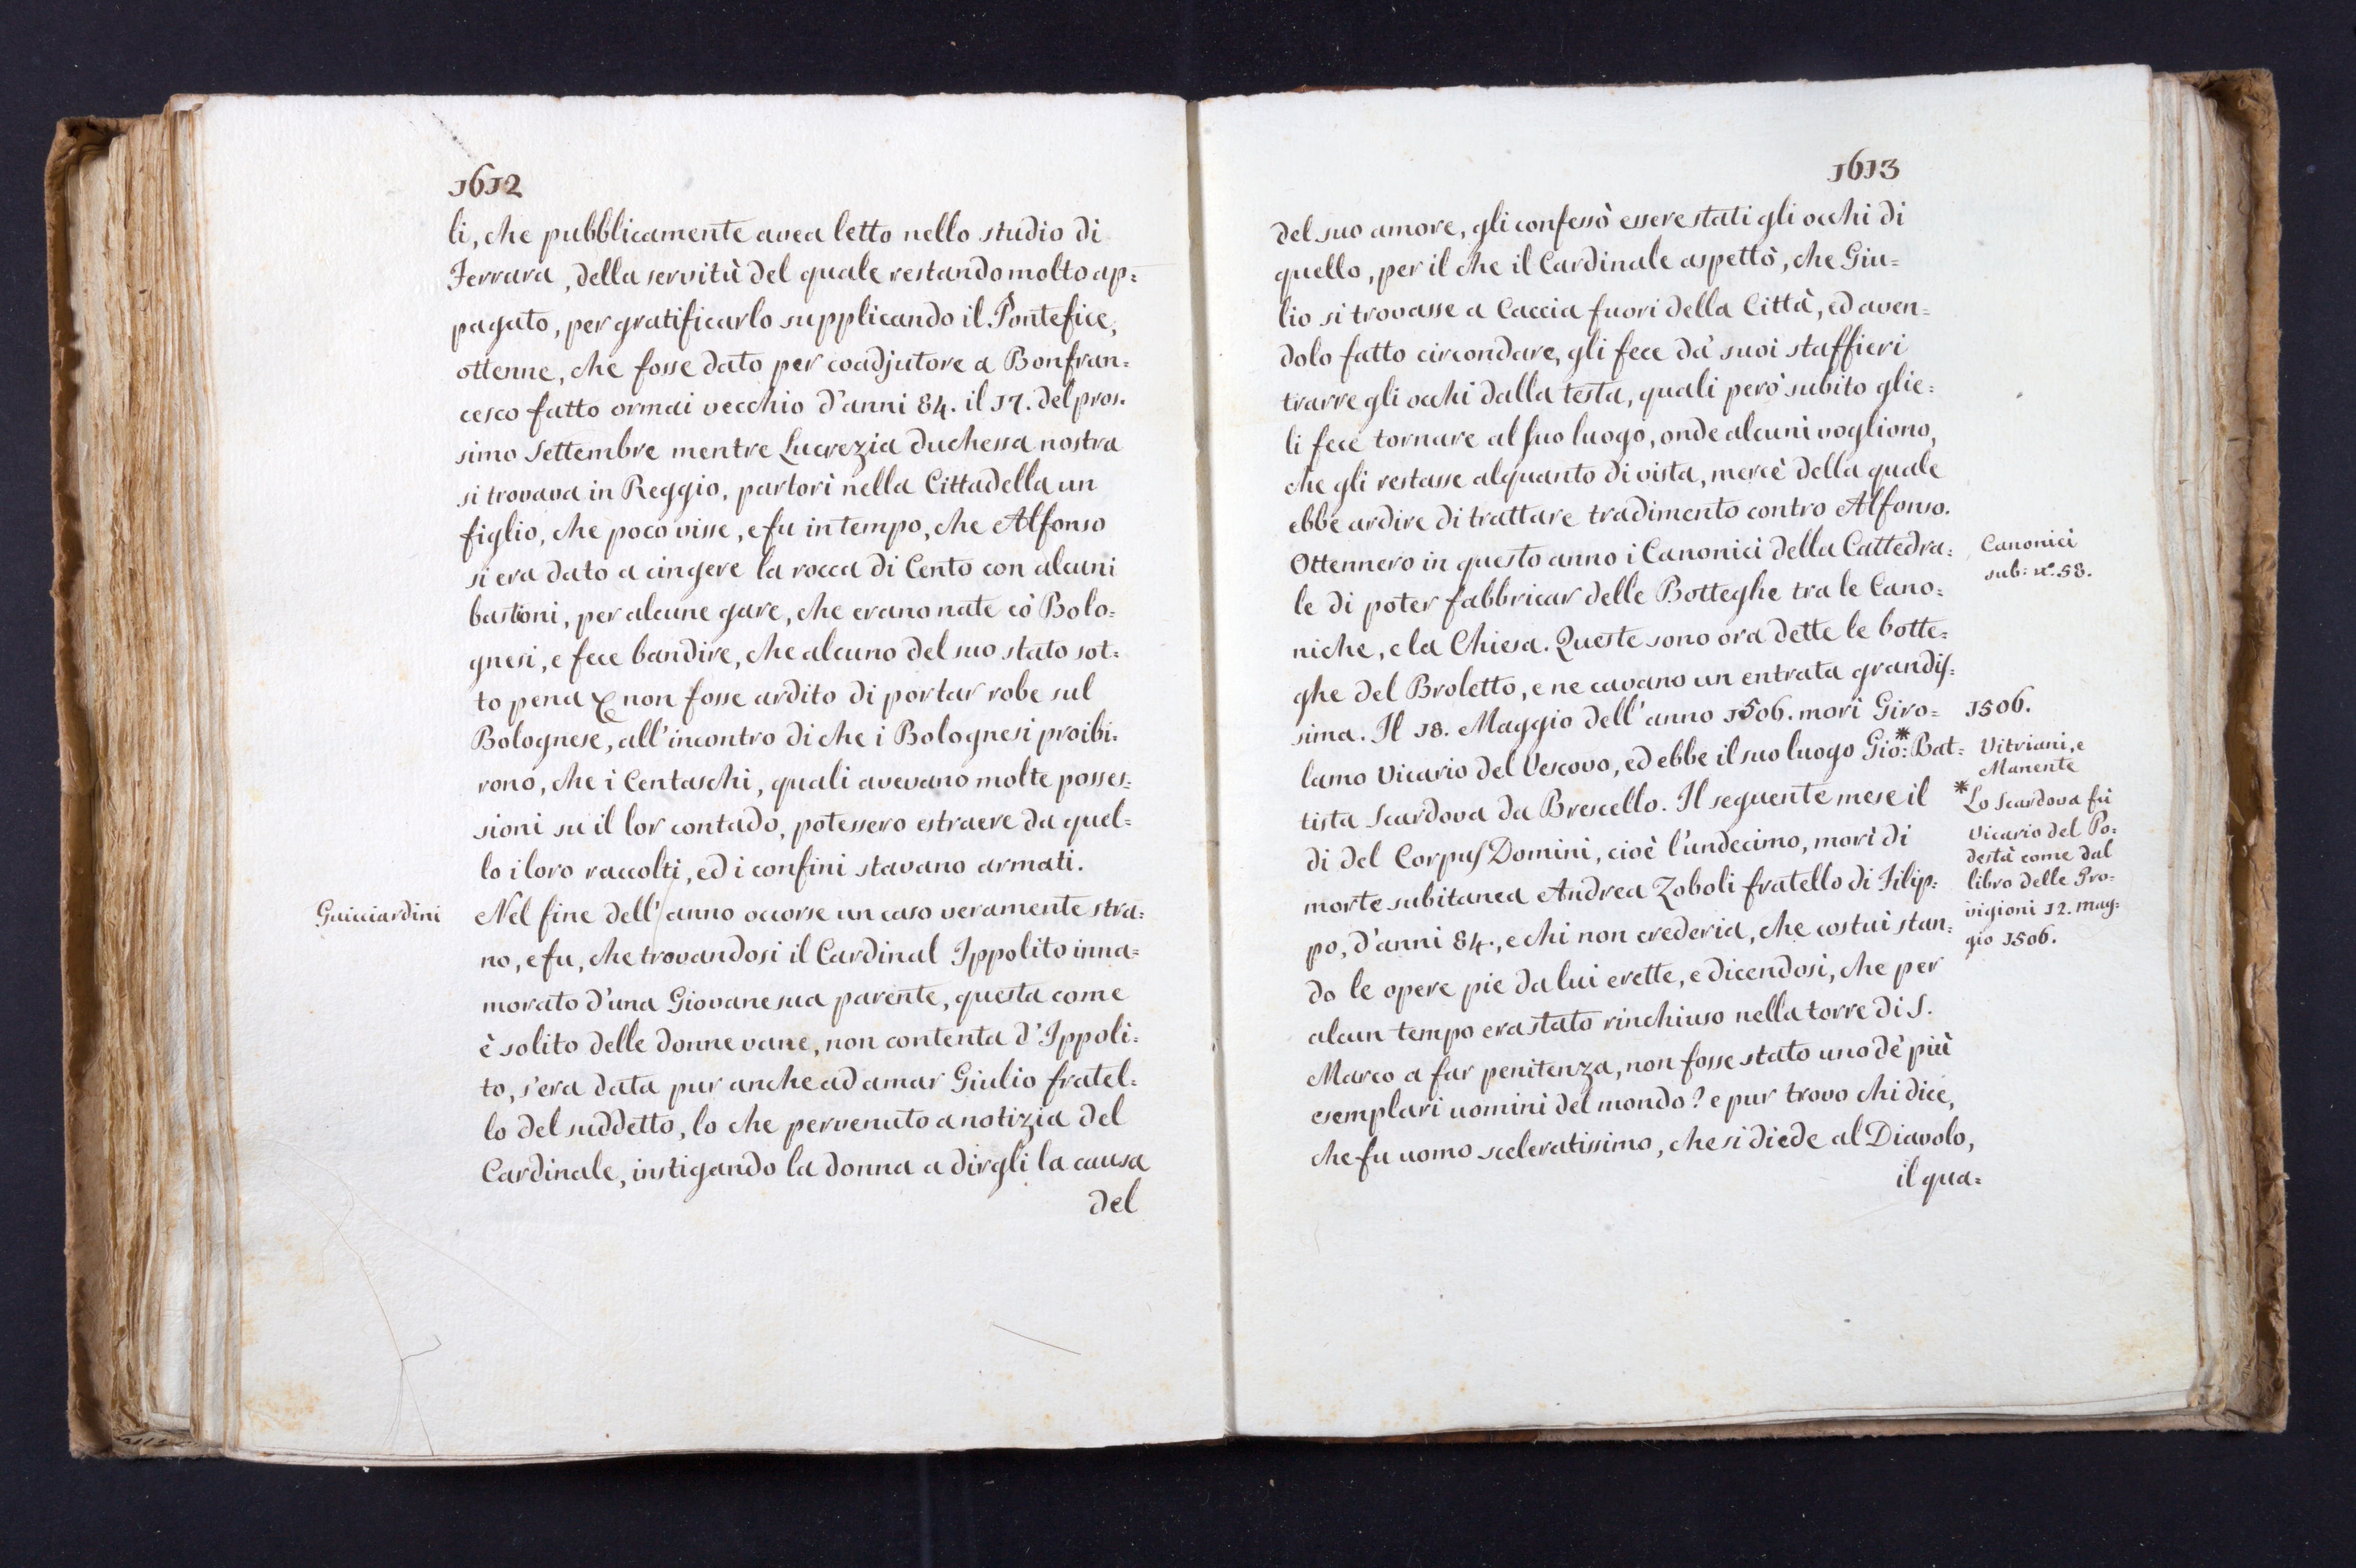 1612
li, che pubblicamente avea letto nello studio di
Ferrara, della servitù del quale restando molto ap=
pagato, per gratificarlo supplicando il Pontefice,
ottenne, che fosse dato per coadjutore a Bonfran=
cesco fatto ormai vecchio d'anni 84. il 17. del pros=
simo Settembre mentre Lucrezia Duchessa nostra
si trovava in Reggio, partorì nella Cittadella un
figlio, che poco visse, e fu in tempo, che Alfonso
si era dato a cingere la rocca di Cento con alcuni
bastioni, per alcune gare, che erano nate cò Bolo=
gnesi, e fece bandire, che alcuno del suo stato sot=
to pena &c non fosse ardito di portar robe sul
Bolognese, all'incontro di che i Bolognesi proibi=
rono, che i Centaschi, quali avevano molte posses=
sioni su il lor contado, potessero estraere da quel=
lo i loro raccolti, ed i confini stavano armati.
Guicciardini
Nel fine dell'anno occorse un caso veramente stra=
no, e fu, che trovandosi il Cardinal Ippolito inna=
morato d'una Giovane sua parente, questa come
è solito delle donne vane, non contenta d'Ippoli=
to, s'era data pur anche ad amar Giulio fratel=
lo del suddetto, lo che pervenuto a notizia del
Cardinale, instigando la donna a dirgli la causa
del
1613
del suo amore, gli confessò essere stati gli occhi di
quello, per il che il Cardinale aspettò, che Giu=
lio si trovasse a Caccia fuori della Città, ed aven=
dolo fatto circondare, gli fece da' suoi staffieri
trarre gli occhi dalla testa, quali però subito glie=
li fece tornare al suo luogo, onde alcuni vogliono,
che gli restasse alquanto di vista, mercè della quale
ebbe ardire di trattare tradimento contro Alfonso.
Ottennero in questo anno i Canonici della Cattedra=
le di poter fabbricar delle Botteghe tra le Cano=
niche, e la Chiesa. Queste sono ora dette le botte=
ghe del Broletto, e ne cavano un entrata grandis=
sima. Il 18. Maggio dell'anno 1506. morì Giro=
lamo Vicario del Vescovo, ed ebbe il suo luogo Gio:* Bat=
tista Scardova da Brescello. Il seguente mese il
dì del Corpus Domini, cioè l'undecimo, morì di
morte subitanea Andrea Zoboli fratello di Filip=
po, d'anni 84., e chi non crederia, che costui stan=
do le opere pie da lui erette, e dicendosi, che per
alcun tempo era stato rinchiuso nella torre di S.
Marco a far penitenza, non fosse stato uno dè più
esemplari uomini del mondo? e pur trovo chi dice,
che fu uomo sceleratissimo, che si diede al Diavolo,
il qua=
Canonici
sub: n.º 58.
1506.
Vitriani, e
Manente
*Lo Scardova fù
Vicario del Po=
destà come dal
libro delle Pro=
vigioni 12. mag=
gio 1506.